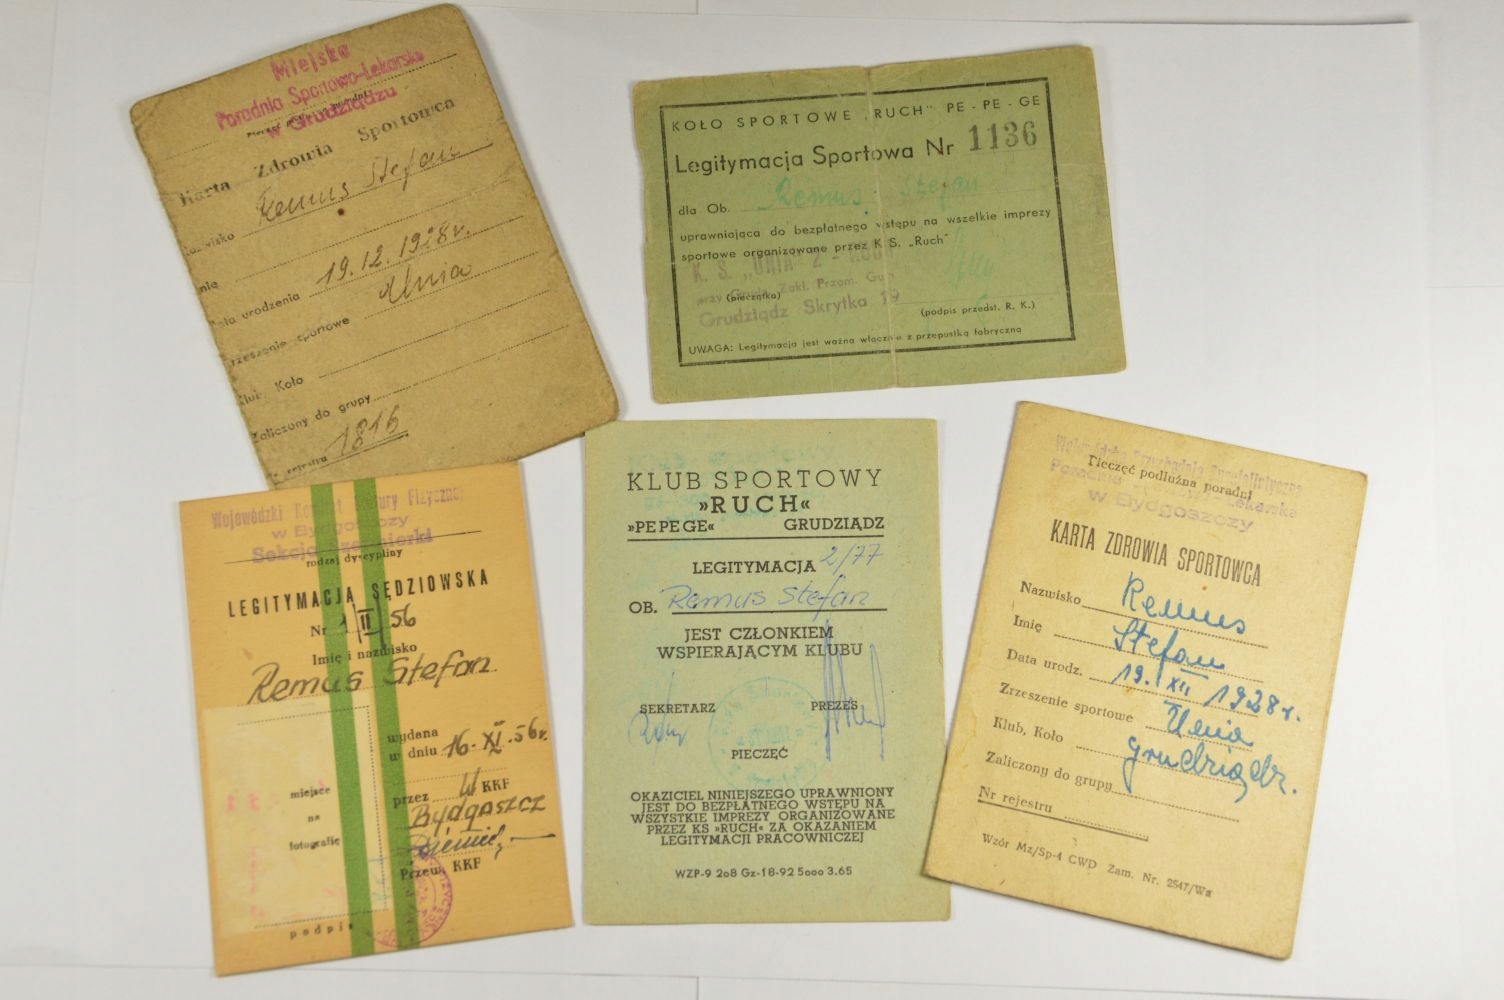 Miejska
Poradnia Sportowo-Lekarska
w Grudziądzu
Karta Zdrowia Sportowca
Remus Stefan
19.12.1928r.
urodzenia
Unia
sportowe
Koło
Zaliczony do grupy
rejestru 1816
KOŁO SPORTOWE „RUCH" PE-PE-GE
Legitymacja Sportowa Nr 1136
dla Ob. Remus Stefan
uprawniająca do bezpłatnego wstępu na wszelkie imprezy
sportowe organizowane przez K. S. „Ruch"
K. S. „UNIA"
przy Grudz. Zakł. Przem. Gum.
(pieczątka)
Grudziądz Skrytka 19
(podpis przedst. R. K.)
UWAGA: Legitymacja jest ważna włącznie z przepustką fabryczną
Wojewódzki Komitet Kultury Fizycznej
w Bydgoszczy
Sekcja Szermierki
rodzaj dyscypliny
LEGITYMACJA SĘDZIOWSKA
Nr 1/II/56
Imię i nazwisko
Remus Stefan
wydana
w dniu 16-XI-56r.
przez W KKF
Bydgoszcz
Przew. KKF
miejsce
na
fotografię
podpis
KLUB SPORTOWY
»RUCH«
»PEPEGE« GRUDZIĄDZ
LEGITYMACJA 2/77
OB. Remus Stefan
JEST CZŁONKIEM
WSPIERAJĄCYM KLUBU
SEKRETARZ PREZES
PIECZĘĆ
OKAZICIEL NINIEJSZEGO UPRAWNIONY
JEST DO BEZPŁATNEGO WSTĘPU NA
WSZYSTKIE IMPREZY ORGANIZOWANE
PRZEZ KS »RUCH« ZA OKAZANIEM
LEGITYMACJI PRACOWNICZEJ
WZP-9 208 Gz-18-92 5000 3.65
Wojewódzka Przychodnia Specjalistyczna
Pieczęć podłużna poradni
w Bydgoszczy
KARTA ZDROWIA SPORTOWCA
Nazwisko Remus
Imię Stefan
Data urodz. 19. XII 1928r.
Zrzeszenie sportowe Unia
Klub, Koło Grudziądz.
Zaliczony do grupy
Nr rejestru
Wzór Mz/Sp-4 CWD Zam. Nr. 2547/Wa